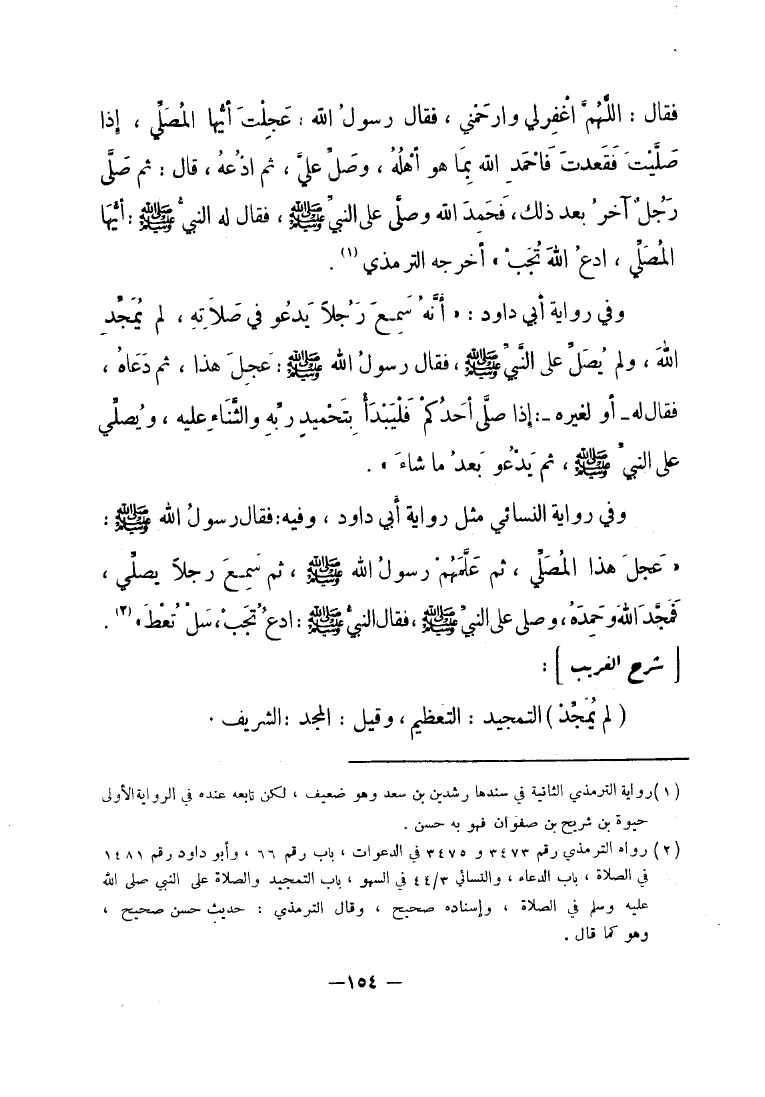 فقال : اللَّهُمَّ اغْفِرلي وارحَمْني ، فقال رسولُ الله : عَجِلْتَ أيُّها المُصَلِّي ، إذا
صَلَّيْتَ فَقَعدتَ فَاحْمَدِ اللهَ بِمَا هو أَهْلُهُ ، وصَلِّ عليَّ ، ثم ادْعُهُ ، قال : ثم صَلَّى
رَجُلٌ آخرُ بعد ذلك، فَحَمِدَ اللهَ وصلَّى على النبيِّ ﷺ ، فقال له النبيُّ ﷺ : أيُّهَا
المُصَلِّي ، ادعُ اللهَ تُجَبْ » أخرجه الترمذي (١) .
وفي رواية أبي داود : « أنَّهُ سَمِعَ رَجُلاً يَدعُو في صَلاتِهِ ، لم يُمَجِّدِ
اللهَ ، ولم يُصَلِّ على النَّبيِّ ﷺ ، فقال رسولُ الله ﷺ : عَجِلَ هذا ، ثم دَعَاهُ ،
فقال له ـ أو لغيره ـ : إذا صلَّى أحَدُكُمْ فَلْيَبْدَأْ بِتَحْميدِ ربِّهِ والثَّنَاءِ عليه ، ويُصلِّي
على النبيِّ ﷺ ، ثم يَدْعُو بَعدُ ما شاءَ » .
وفي رواية النسائي مثل رواية أبي داود ، وفيه : فقال رسولُ الله ﷺ :
« عَجِلَ هذا المُصَلِّي ، ثم عَلَّمَهُمْ رسولُ الله ﷺ ، ثم سَمِعَ رجلاً يصلِّي ،
فَمَجَّدَ اللهَ وحَمِدَهُ ، وصلى على النبيِّ ﷺ ، فقال النبيُّ ﷺ : ادعُ تُجَبْ ، سَلْ تُعْطَ » (٢) .
[ شرح الغريب ] :
( لم يُمَجِّدْ ) التمجيد : التعظيم ، وقيل : المجد : الشريف .
(١) رواية الترمذي الثانية في سندها رشدين بن سعد وهو ضعيف ، لكن تابعه عنده في الرواية الأولى
حيوة بن شريح بن صفوان فهو به حسن .
(٢) رواه الترمذي رقم ٣٤٧٣ و ٣٤٧٥ في الدعوات ، باب رقم ٦٦ ، وأبو داود رقم ١٤٨١
في الصلاة ، باب الدعاء ، والنسائي ٤٤/٣ في السهو ، باب التمجيد والصلاة على النبي صلى الله
عليه وسلم في الصلاة ، وإسناده صحيح ، وقال الترمذي : حديث حسن صحيح ،
وهو كما قال .
— ١٥٤ —